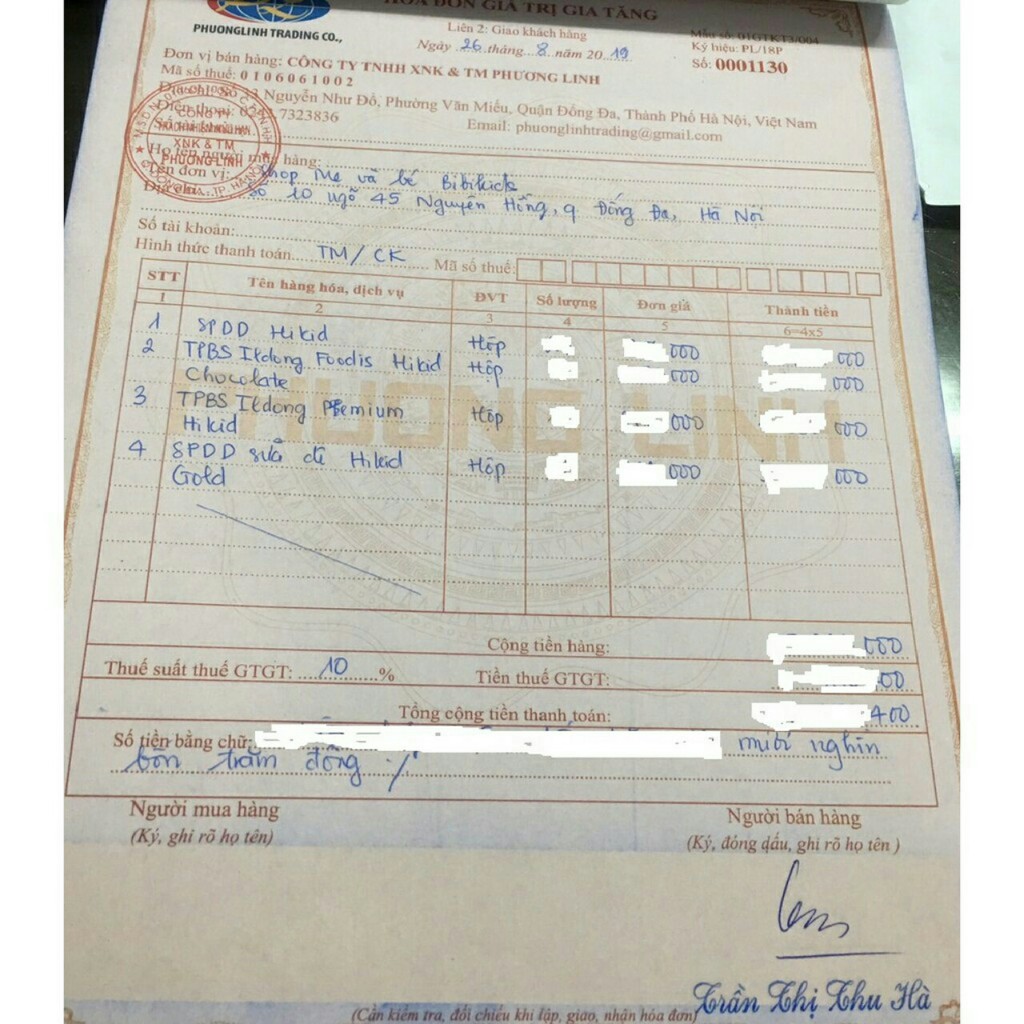 HÓA ĐƠN GIÁ TRỊ GIA TĂNG
PHUONGLINH TRADING CO.,
Liên 2: Giao khách hàng
Ngày 26 tháng 8 năm 2019
Mẫu số: 01GTKT3/004
Ký hiệu: PL/18P
Số: 0001130
Đơn vị bán hàng: CÔNG TY TNHH XNK & TM PHƯƠNG LINH
Mã số thuế: 0106061001
Nguyễn Như Đổ, Phường Văn Miếu, Quận Đống Đa, Thành Phố Hà Nội, Việt Nam
Điện thoại: 7323836
Email: phuonglinhtrading@gmail.com
CÔNG TY
TRÁCH NHIỆM HỮU HẠN
XNK & TM
PHƯƠNG LINH
hàng:
Tên đơn vị: Shop Mẹ và bé Bibikick
Địa chỉ: Số 10 ngõ 45 Nguyên Hồng, q Đống Đa, Hà Nội
Số tài khoản:
Hình thức thanh toán: TM / CK Mã số thuế:
STT Tên hàng hóa, dịch vụ ĐVT Số lượng Đơn giá Thành tiền
1 2 3 4 5 6=4x5
1 SPDD Hikid Hộp 000 000
2 TPBS Ildong Foodis Hikid Hộp 000 000
Chocolate
3 TPBS Ildong Premium Hộp 000 000
Hikid
4 SPDD sữa dê Hikid Hộp 000 000
Gold
PHUONG LINH
Cộng tiền hàng: 000
Thuế suất thuế GTGT: 10 % Tiền thuế GTGT: 00
Tổng cộng tiền thanh toán: 400
Số tiền bằng chữ: mươi nghìn
bốn trăm đồng ./.
Người mua hàng Người bán hàng
(Ký, ghi rõ họ tên) (Ký, đóng dấu, ghi rõ họ tên )
Trần Thị Thu Hà
(Cần kiểm tra, đối chiếu khi lập, giao, nhận hóa đơn)